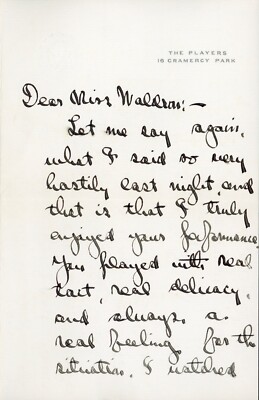 THE PLAYERS
16 GRAMERCY PARK
Dear Miss Waldron:—
Let me say again,
what I said so very
hastily last night, and
that is that I truly
enjoyed your performance.
You played with real
tact, real delicacy,
and always, a
real feeling for the
situation. I watched